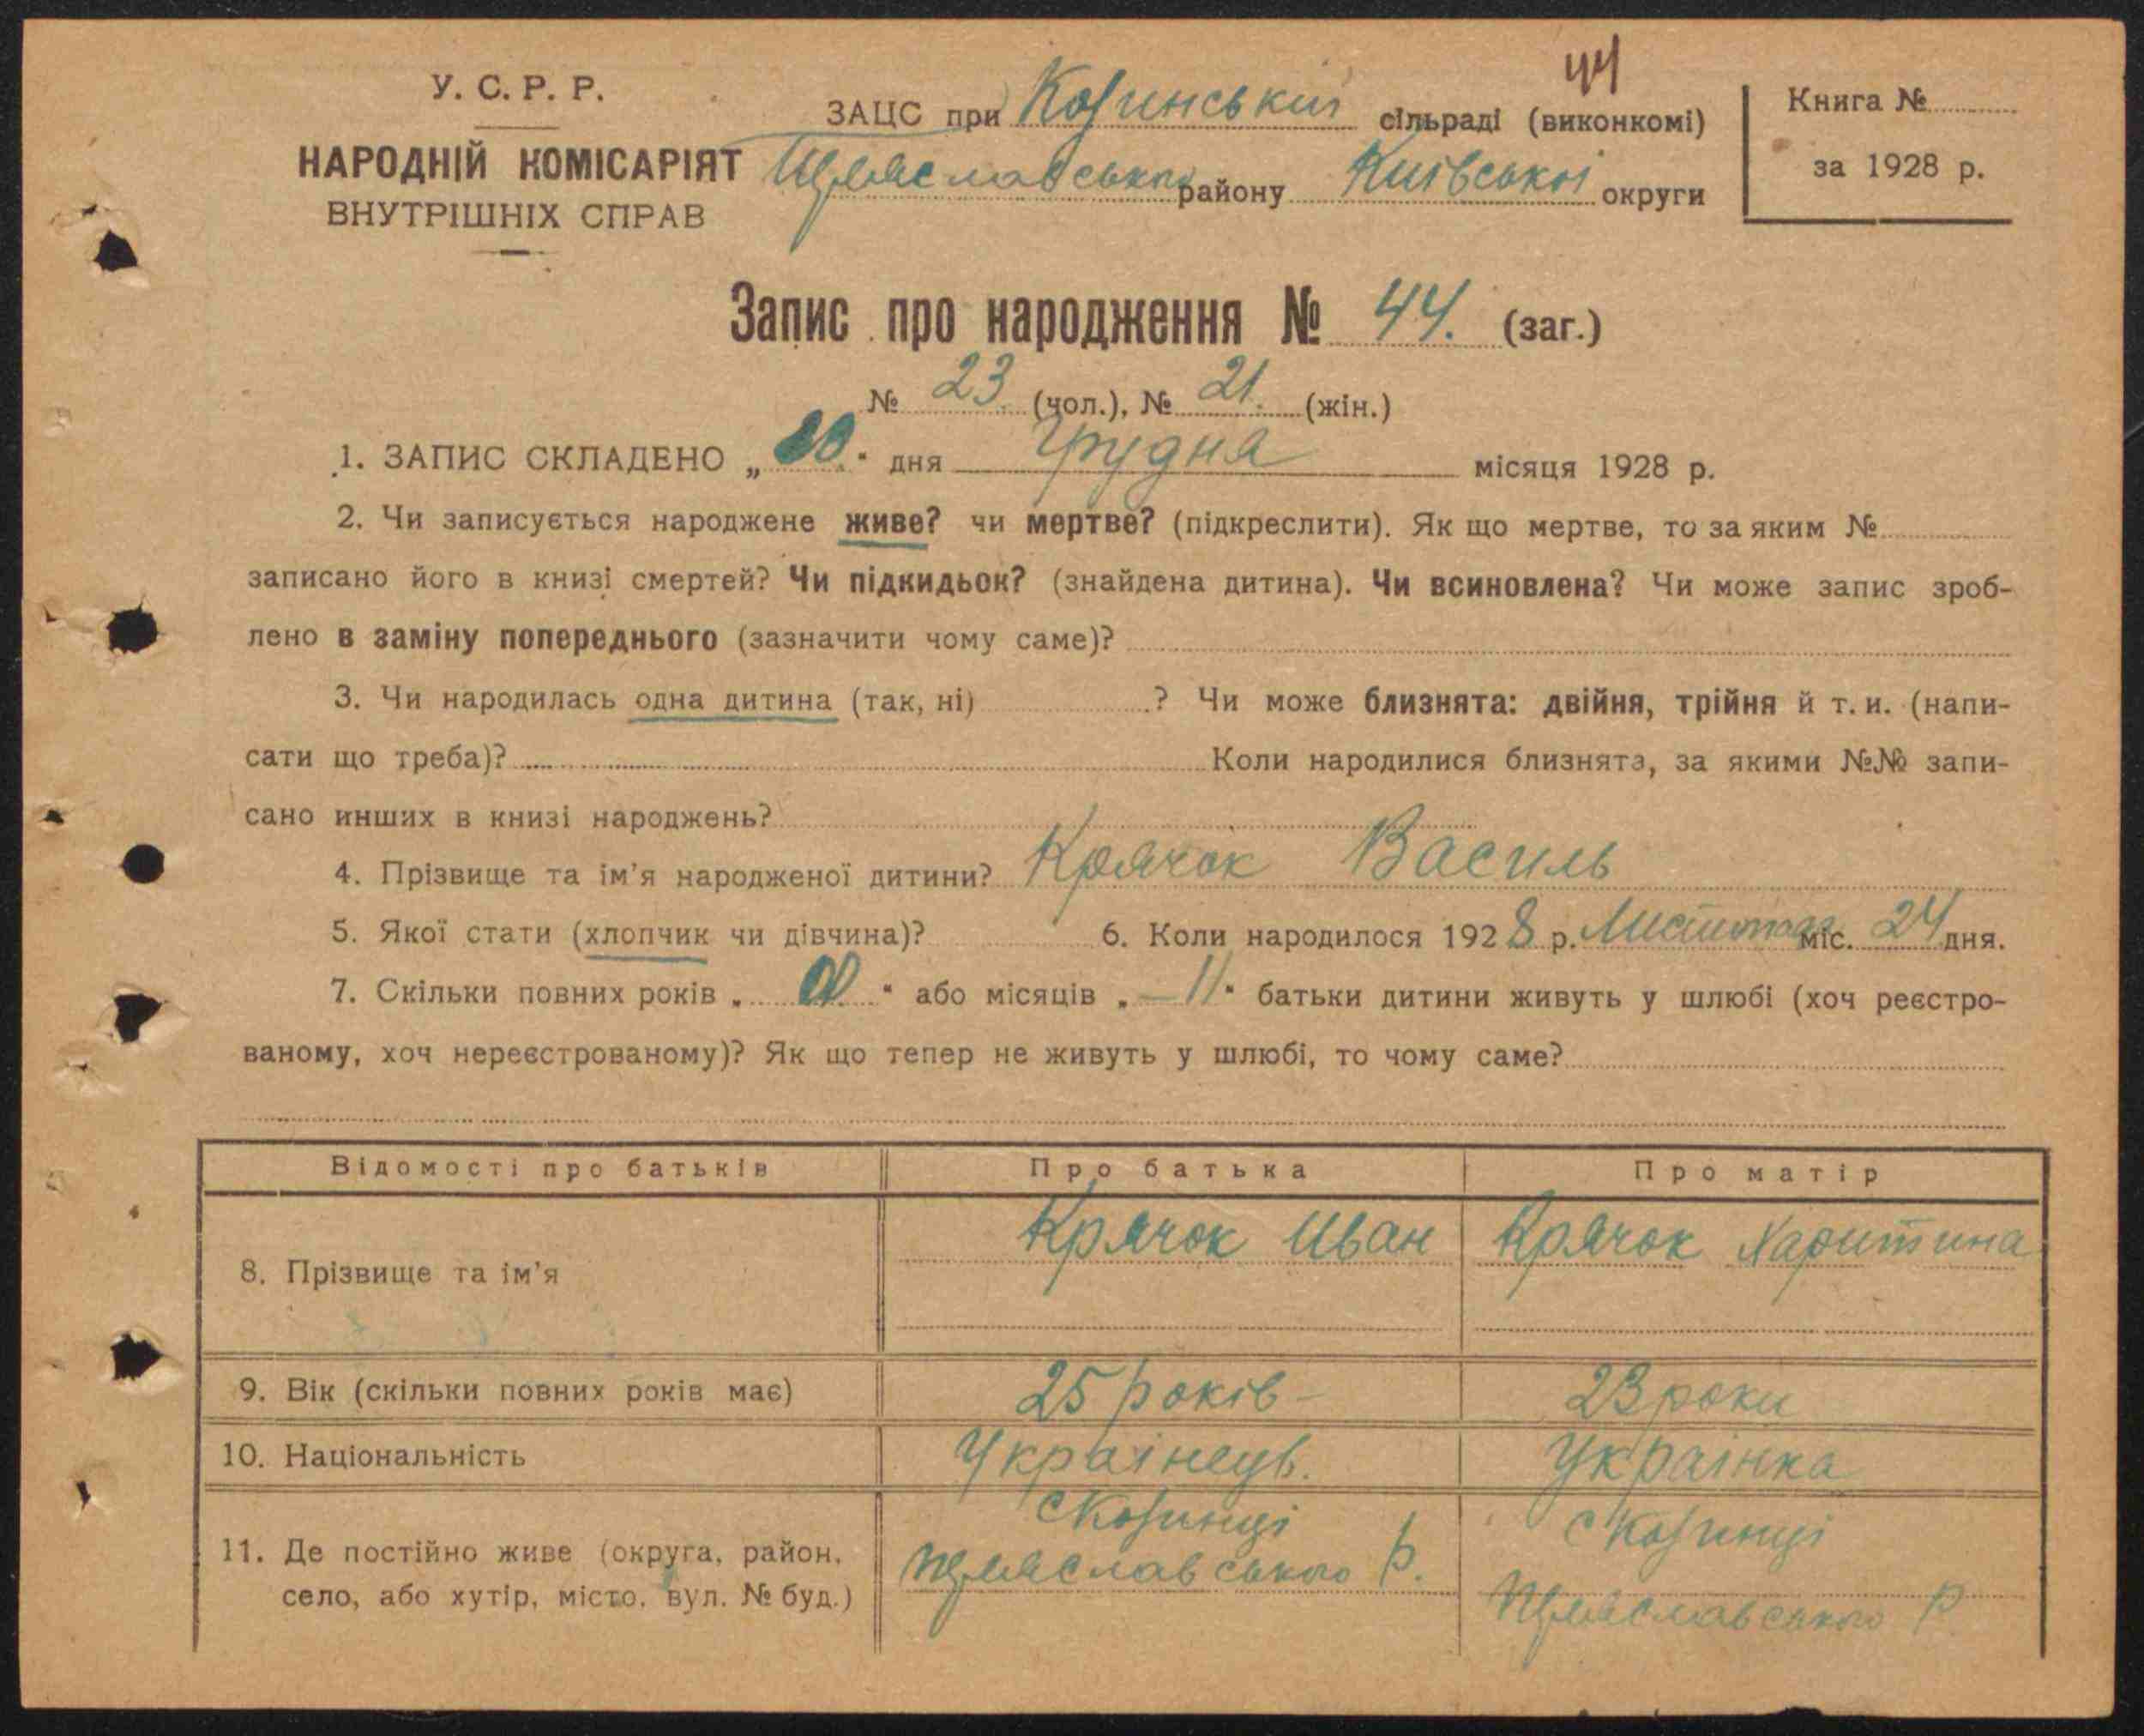 44
У. С. Р. Р.
НАРОДНІЙ КОМІСАРІЯТ
ВНУТРІШНІХ СПРАВ
ЗАЦС при Козинській сільраді (виконкомі)
району Київської округи
Книга №
за 1928 р.
Запис про народження № 44. (заг.)
№ 23. (чол.), № 21. (жін.)
1. ЗАПИС СКЛАДЕНО „20.“ дня Грудня місяця 1928 р.
2. Чи записується народжене живе? чи мертве? (підкреслити). Як що мертве, то за яким №
записано його в книзі смертей? Чи підкидьок? (знайдена дитина). Чи всиновлена? Чи може запис зроб-
лено в заміну попереднього (зазначити чому саме)?
3. Чи народилась одна дитина (так, ні) ? Чи може близнята: двійня, трійня й т. и. (напи-
сати що треба)? Коли народилися близнята, за якими №№ запи-
сано инших в книзі народжень?
4. Прізвище та ім'я народженої дитини? Крячок Василь
5. Якої стати (хлопчик чи дівчина)? 6. Коли народилося 1928 р. Листопад міс. 24 дня.
7. Скільки повних років „ “ або місяців „—11“ батьки дитини живуть у шлюбі (хоч реєстро-
ваному, хоч нереєстрованому)? Як що тепер не живуть у шлюбі, то чому саме?
Відомості про батьків Про батька Про матір
8. Прізвище та ім'я Крячок Иван Крячок Харитина
9. Вік (скільки повних років має) 25 років – 23 роки
10. Національність Украінець. Украінка
11. Де постійно живе (округа, район, село, або хутір, місто, вул. № буд.)
с Козинці р.
с Козинці р